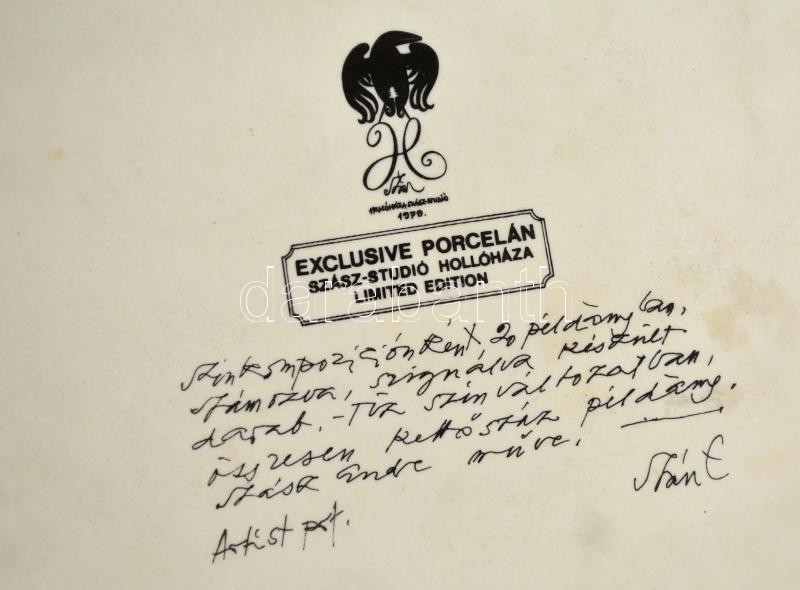 H
HOLLÓHÁZA SZÁSZ-STUDIÓ
1978.
EXCLUSIVE PORCELÁN
SZÁSZ-STUDIÓ HOLLÓHÁZA
LIMITED EDITION
darabanth
Szinkompoziciónként 20 példányban,
számozva, szignálva készült
darab. - Tiz szinváltozatban,
összesen kettőszáz példány.
Szász Endre műve.
Artist prf.